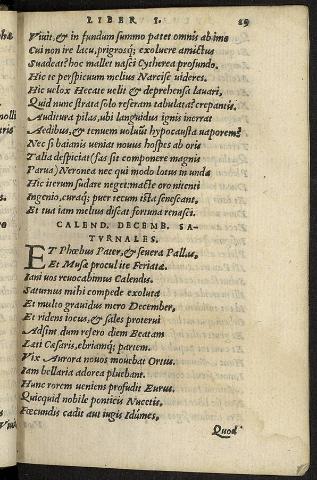 LIBER I. 89
Viuit, & in fundum summo patet omnis ab imo
Cui non ire lacu, prigrosq; exoluere amictus
Suadeat? hoc mallet nasci Cytherea profundo.
Hic te perspicuum melius Narcise uideres.
Hic uelox Hecate uelit & deprehensa lauari,
Quid nunc strata solo referam tabulata? crepantis
Auditura pilas, ubi languidus ignis inerrat
Aedibus, & tenuem uoluũt hypocausta uaporem?
Nec si baianis ueniat nouus hospes ab oris
Talia despiciat (fas sit componere magnis
Parua) Neronea nec qui modo lotus in unda
Hic iterum sudare neget: macte oro nitenti
Ingenio, curaq; puer tecum ista senescant,
Et tua iam melius discat fortuna renasci.
CALEND. DECEMB. SA-
TVRNALES.
ET Phœbus Pater, & seuera Pallas,
Et Musæ procul ite Feriata.
Iani uos reuocabimus Calendis.
Saturnus mihi compede exoluta
Et multo grauidus mero December,
Et ridens iocus, & sales proterui
Adsint dum refero diem Beatam
Lati Cæsaris, ebriamq; partem.
Vix Aurora nouos mouebat Ortus.
Iam bellaria adorea pluebant.
Hunc rorem ueniens profudit Eurus.
Quicquid nobile ponticis Nucetis,
Fœcundis cadit aut iugis Idúmes,
Quod